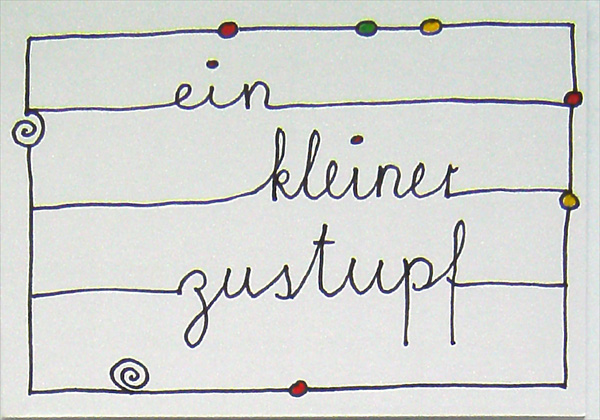 ein
kleiner
zustupf